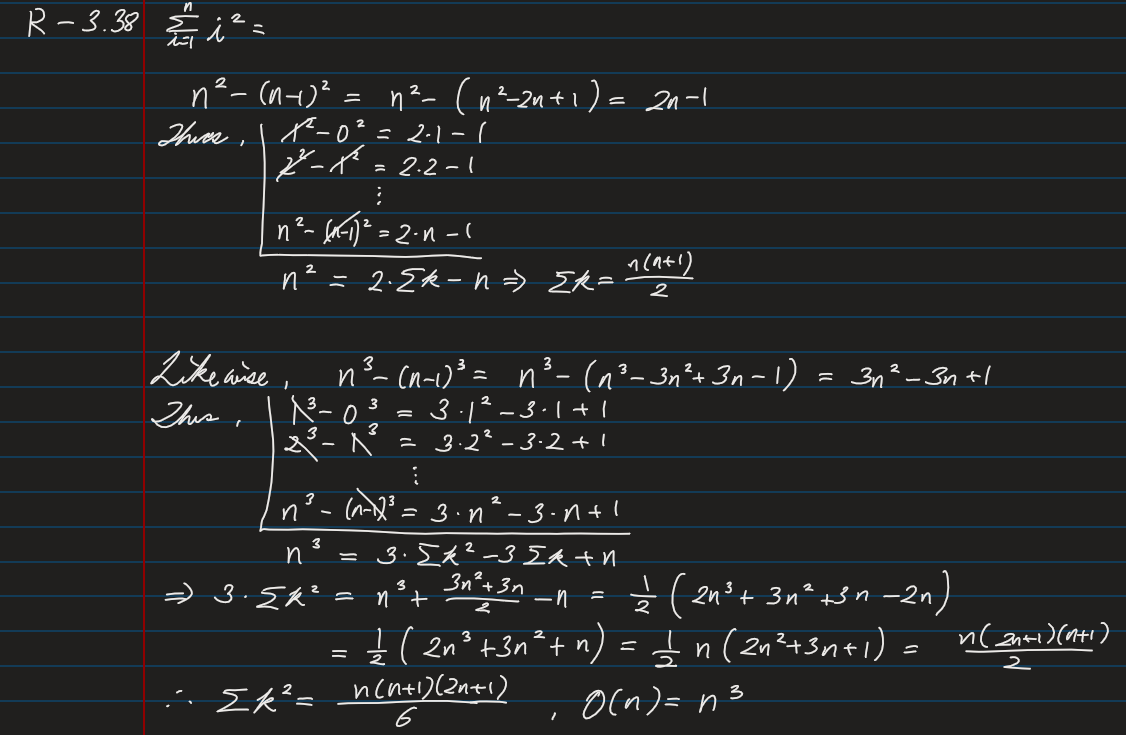 R - 3.38 \sum_{i=1}^{n} i² =
n² - (n-1)² = n² - (n² - 2n + 1) = 2n - 1
Thus, 1² - 0² = 2·1 - 1
2² - 1² = 2·2 - 1
⋮
n² - (n-1)² = 2·n - 1
n² = 2·Σk - n ⇒ Σk = \frac{n(n+1)}{2}
Likewise, n³ - (n-1)³ = n³ - (n³ - 3n² + 3n - 1) = 3n² - 3n + 1
Thus, 1³ - 0³ = 3·1² - 3·1 + 1
2³ - 1³ = 3·2² - 3·2 + 1
⋮
n³ - (n-1)³ = 3·n² - 3·n + 1
n³ = 3·Σk² - 3Σk + n
⇒ 3·Σk² = n³ + \frac{3n²+3n}{2} - n = \frac{1}{2}(2n³ + 3n² + 3n - 2n)
= \frac{1}{2}(2n³ + 3n² + n) = \frac{1}{2}n(2n² + 3n + 1) = \frac{n(2n+1)(n+1)}{2}
∴ Σk² = \frac{n(n+1)(2n+1)}{6}, O(n) = n³